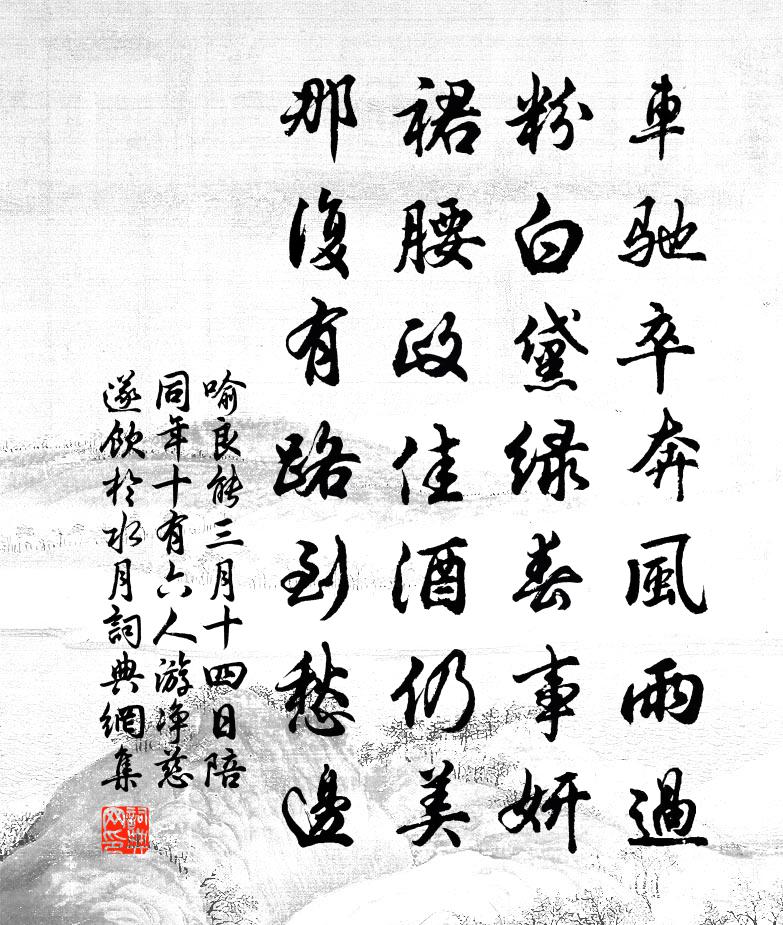 車馳卒奔風雨過
粉白黛緑春事妍
裙腰政佳酒仍美
那復有路到愁邊
喻良能三月十四日陪
同年十有六人游净慈
遂飲於水月詞典網集